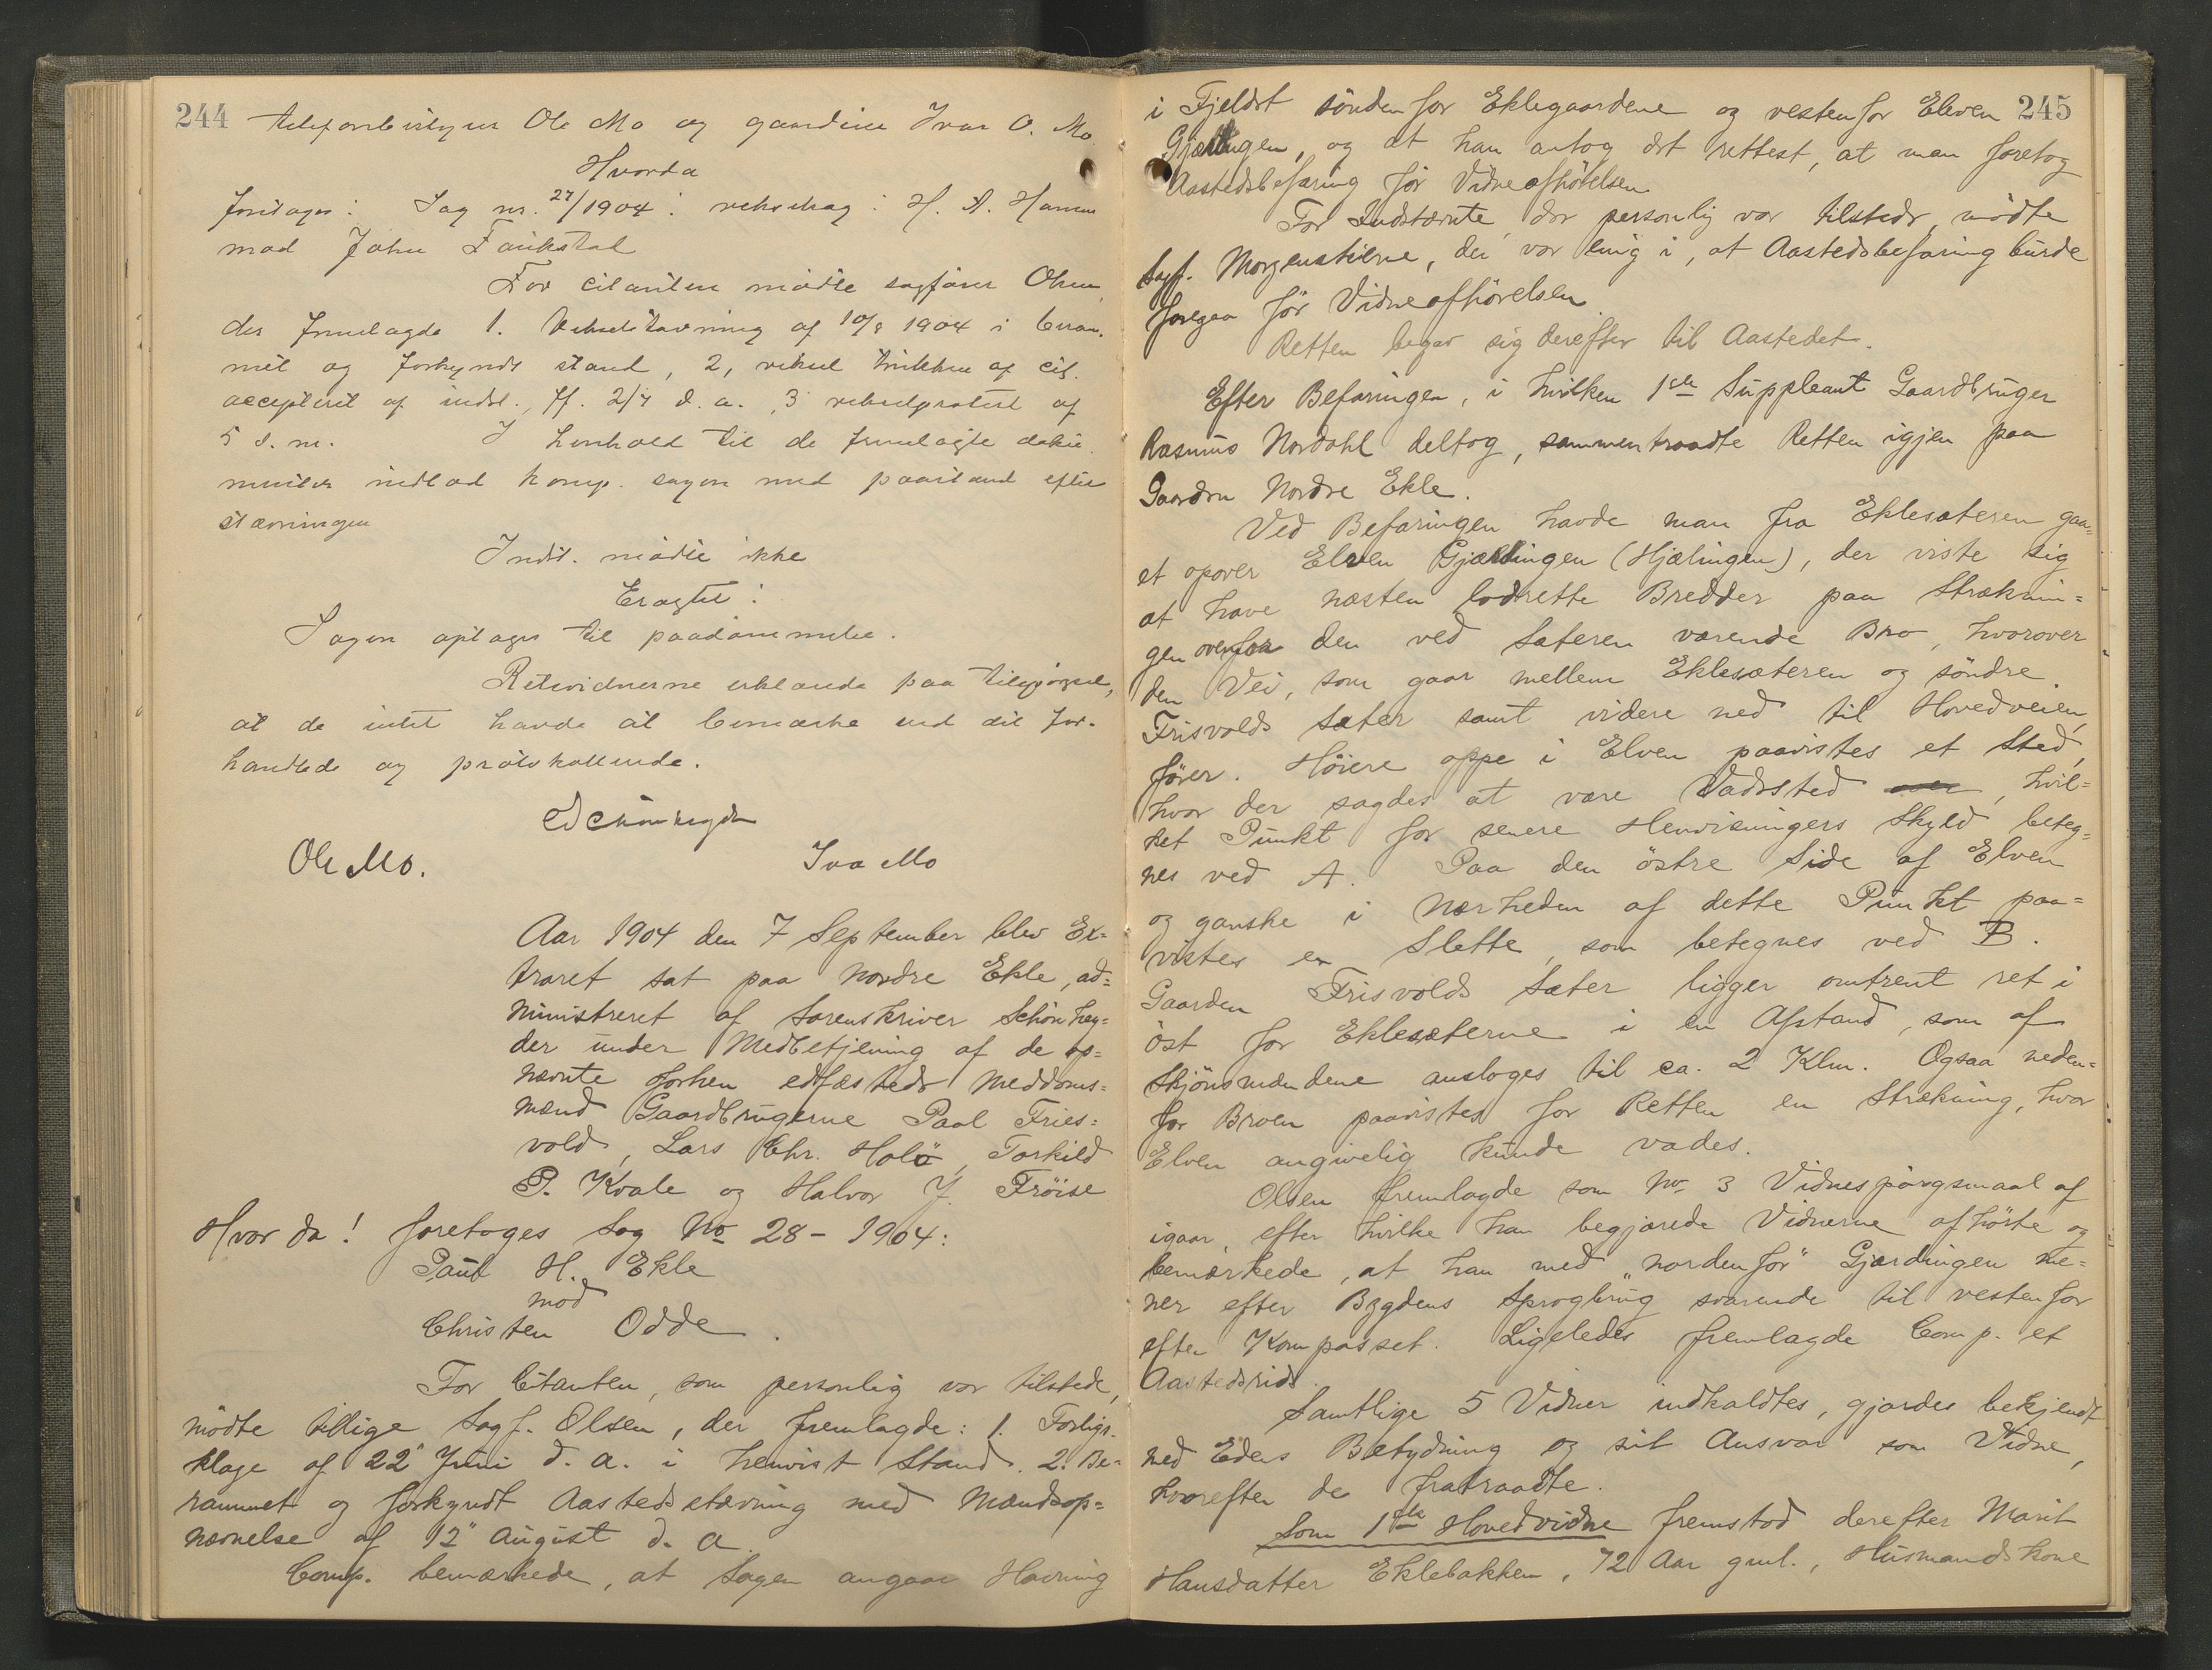 244
telefonbestyrer Ole Mo og gaardbr. Ivar O. Mo.
Hvorda
foretoges: Sag nr. 27/1904: vekselsag: H. A. Hamm
mod John
For citanten mødte sagfører Olsen,
der fremlagde 1. Vekselstævning af 10/8 1904 i beram-
met og forkyndt stand, 2, veksel trukken af cit.
accepteret af indst., ff. 2/7 d. a. , 3 vekselprotest af
5 s. m. I henhold til de fremlagte doku-
menter indlod komp. sagen med paastand efter
stævningen
Indst. mødte ikke
Eragtet:
Sagen optages til paadømmelse.
Retsvidnerne erklærede paa tilspørgsel,
at de intet havde at bemærke ved det for-
handlede og protokollerede.
E Schønheyder
Ole Mo. Iva Mo
Aar 1904 den 7 September blev Ex=
traret sat paa Nordre Ekle, ad=
ministreret af Sorenskriver Schönhey=
der under Medbetjening af de op=
nævnte forhen edfæstede Meddoms=
mænd Gaardbrugerne Paal Fries=
vold, Lars Chr. Holö, Torkild
P. Kvale og Halvor J. Fröise
Hvor da! foretoges Sag No 28 - 1904:
Paul H. Ekle
mod
Christen Odde.
For Citanten, som personlig var tilstede,
mödte tillige Sagf. Olsen, der fremlagde: 1. Forligs-
klage af 22" Juni d. a. i henvist Stand. 2. Be=
rammet og forkyndt Aastedsstævning med Mændsop=
nævnelse af 12" August d. a.
Comp. bemærkede, at Sagen angaar Havning
245
i Fjeldet söndenfor Eklegaardene og vestenfor Elven
Gjærdingen, og at han antog det rettest, at man foretog
Aastedsbefaring för Vidneafhörelsen.
For Indstævnte, der personlig var tilstede, mödte
Sagf. Morgenstierne, der var enig i, at Aastedsbefaring burde
foregaa för Vidneafhörelsen.
Retten begav sig derefter til Aastedet.
Efter Befaringen, i hvilken 1ste Suppleant Gaardbruger
Rasmus Nordahl deltog, sammentraadte Retten igjen paa
Gaarden Nordre Ekle.
Ved Befaringen havde man fra Eklesæteren gaa=
et opover Elven Gjærdingen (Hjælingen), der viste sig
at have næsten lodrette Bredder paa Stræknin=
gen ovenfor den ved Sæteren værende Bro, hvorover
den Vei, som gaar mellem Eklesæteren og söndre
Frisvolds Sæter samt videre ned til Hovedveien,
förer. Höiere oppe i Elven paavistes et Sted,
hvor der sagdes at være Vadested , hvil=
ket Punkt for senere Henvisningers Skyld beteg=
nes ved A. Paa den östre Side af Elven
og ganske i Nærheden af dette Punkt paa=
vistes en Slette, som betegnes ved B.
Gaarden Frisvolds Sæter ligger omtrent ret i
öst for Eklesæterne i en Afstand, som af
Skjönsmændene ansloges til ca. 2 Klm. Ogsaa neden=
for Broen paavistes for Retten en Strækning, hvor
Elven angivelig kunde vades.
Olsen fremlagde som No 3 Vidnespörgsmaal af
igaar, efter hvilke han begjærede Vidnerne afhörte og
bemærkede, at han med "nordenfor" Gjærdingen me=
ner efter Bygdens Sprogbrug svarende til vestenfor
efter Kompasset. Ligeledes fremlagde Comp. et
Aastedsrids.
Samtlige 5 Vidner indkaldtes, gjordes bekjendt
med Edens Betydning og sit Ansvar som Vidne,
hvorefter de fratraadte.
Som 1ste Hovedvidne fremstod derefter Marit
Hansdatter Eklebakken, 72 Aar gml., Husmandskone